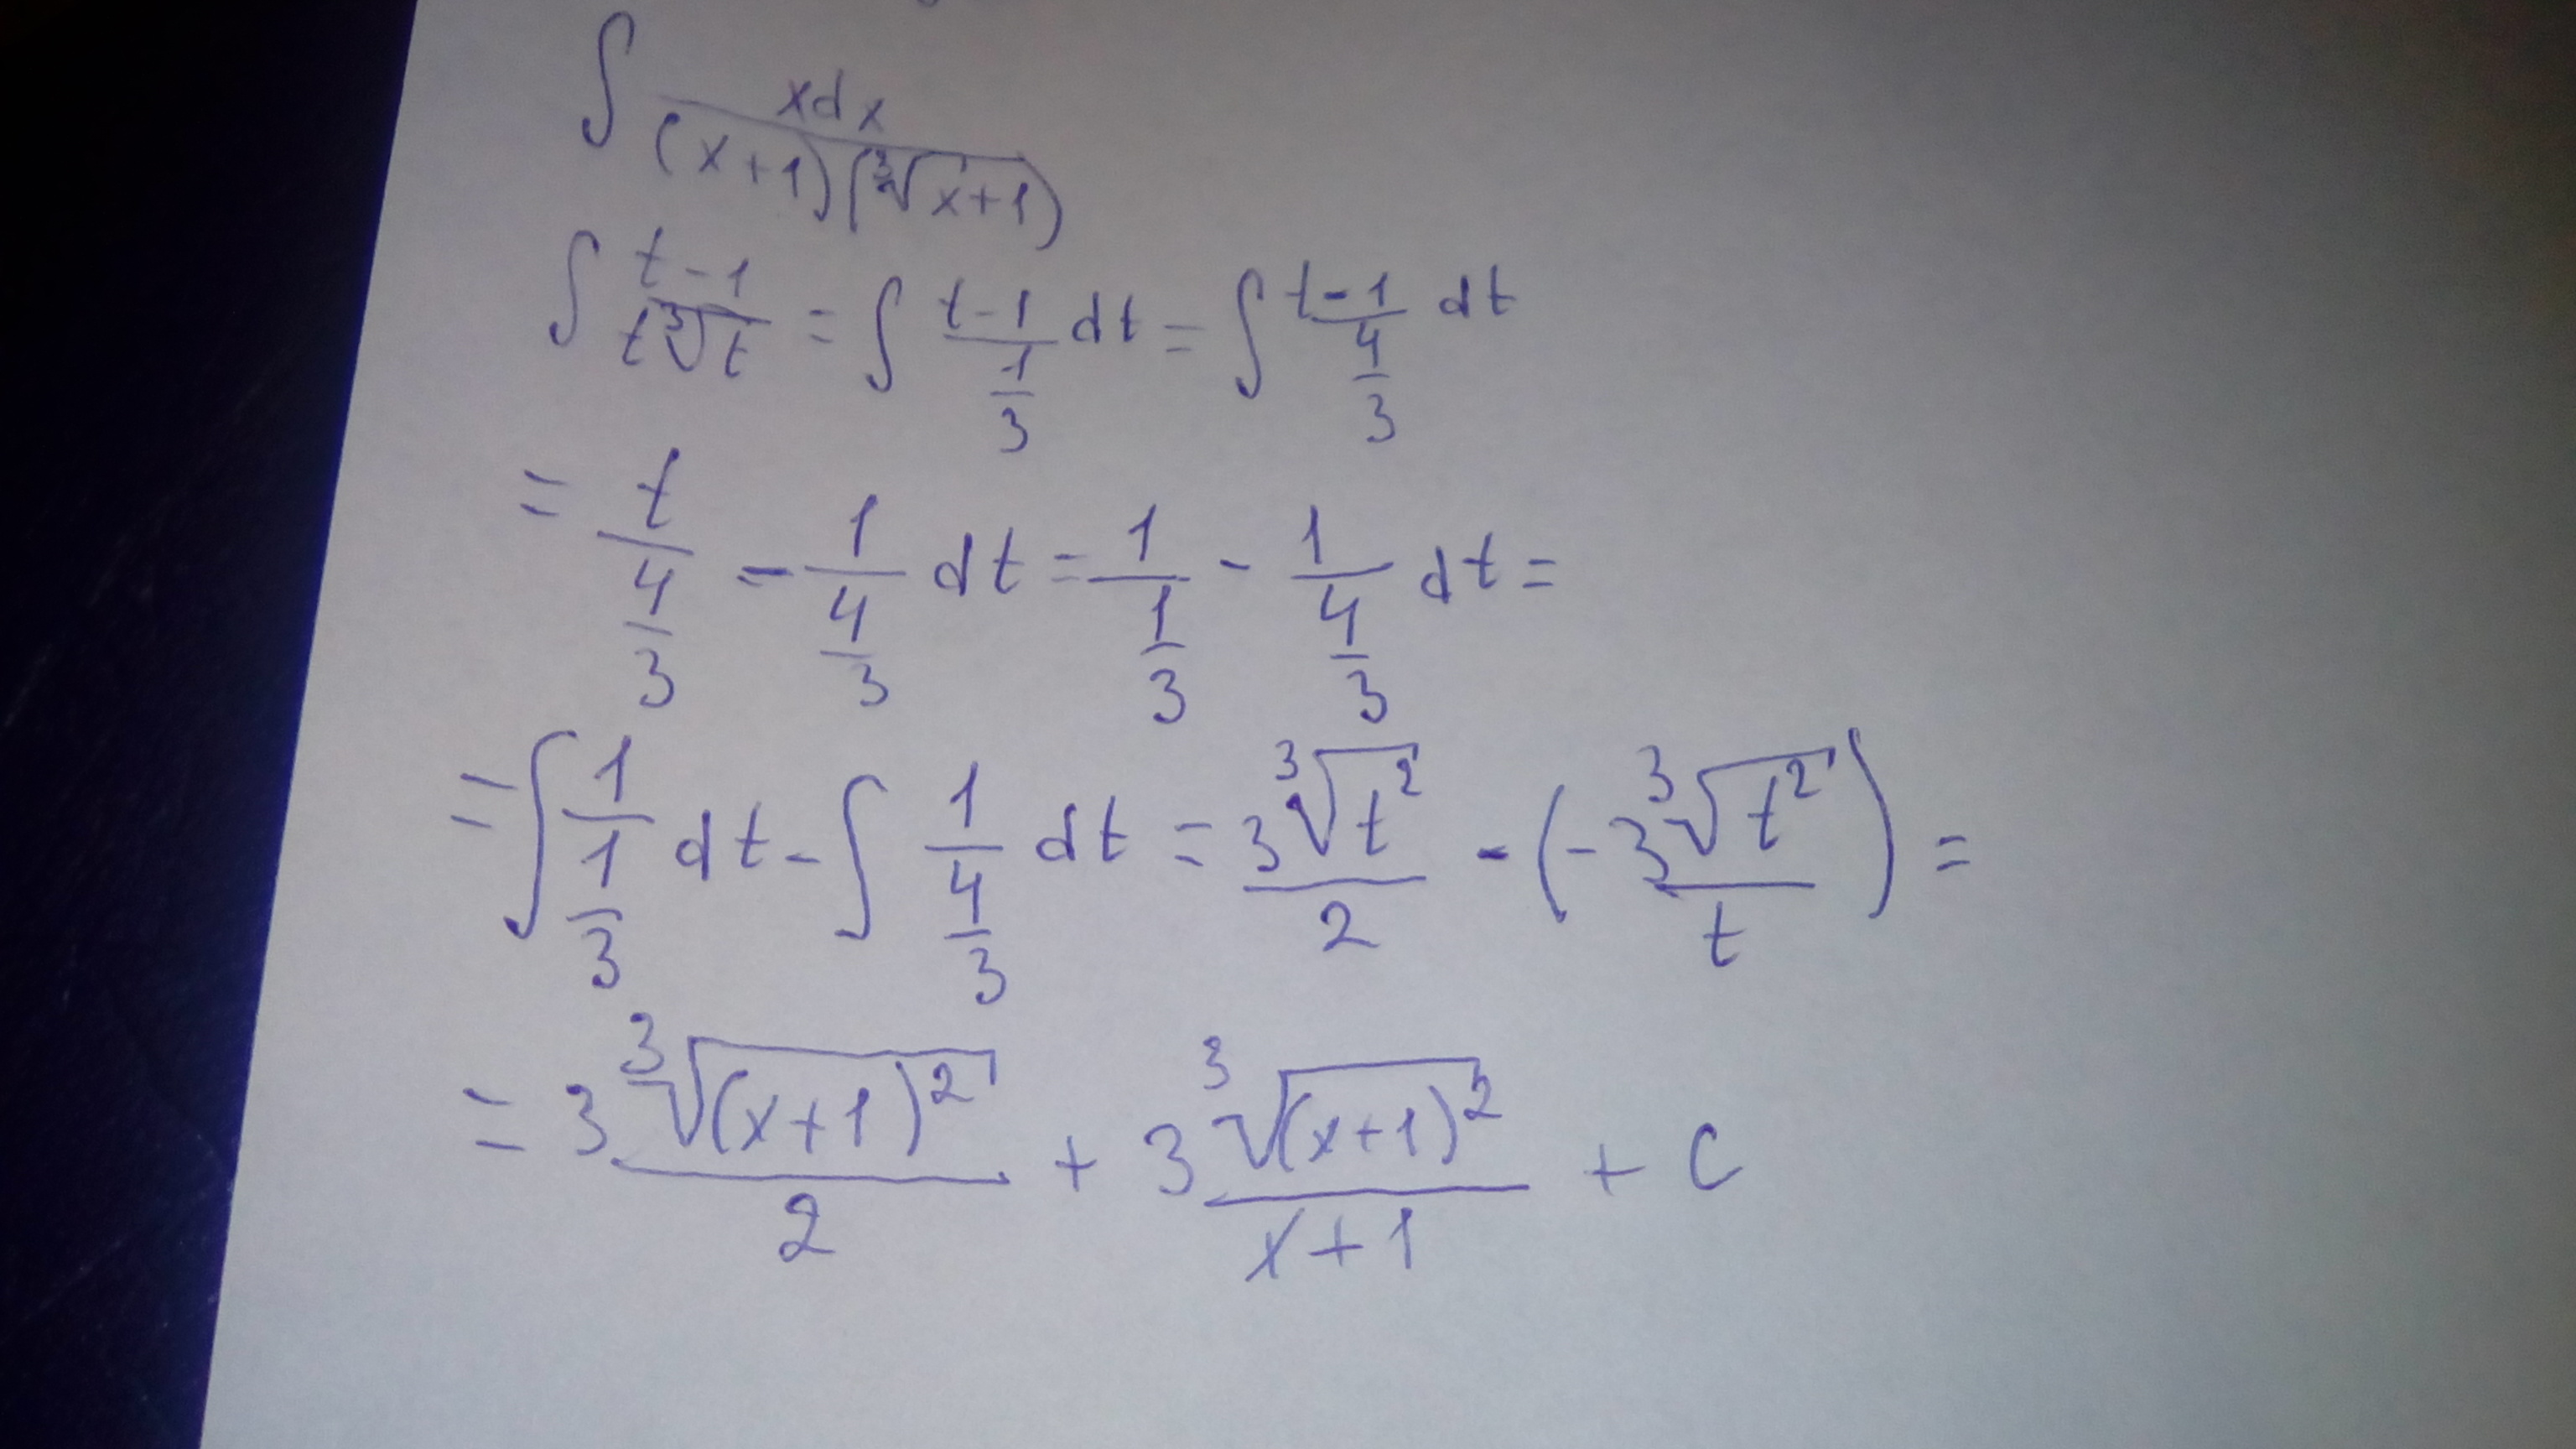 ∫ xdx / (x+1)(∛x+1)
∫ t-1 / t∛t = ∫ t-1 / 1/3 dt = ∫ t-1 / 4/3 dt
= t / 4/3 - 1 / 4/3 dt = 1 / 1/3 - 1 / 4/3 dt =
= ∫ 1 / 1/3 dt - ∫ 1 / 4/3 dt = 3∛t² / 2 - (-3∛t² / t) =
= 3∛(x+1)² / 2 + 3∛(x+1)² / x+1 + C